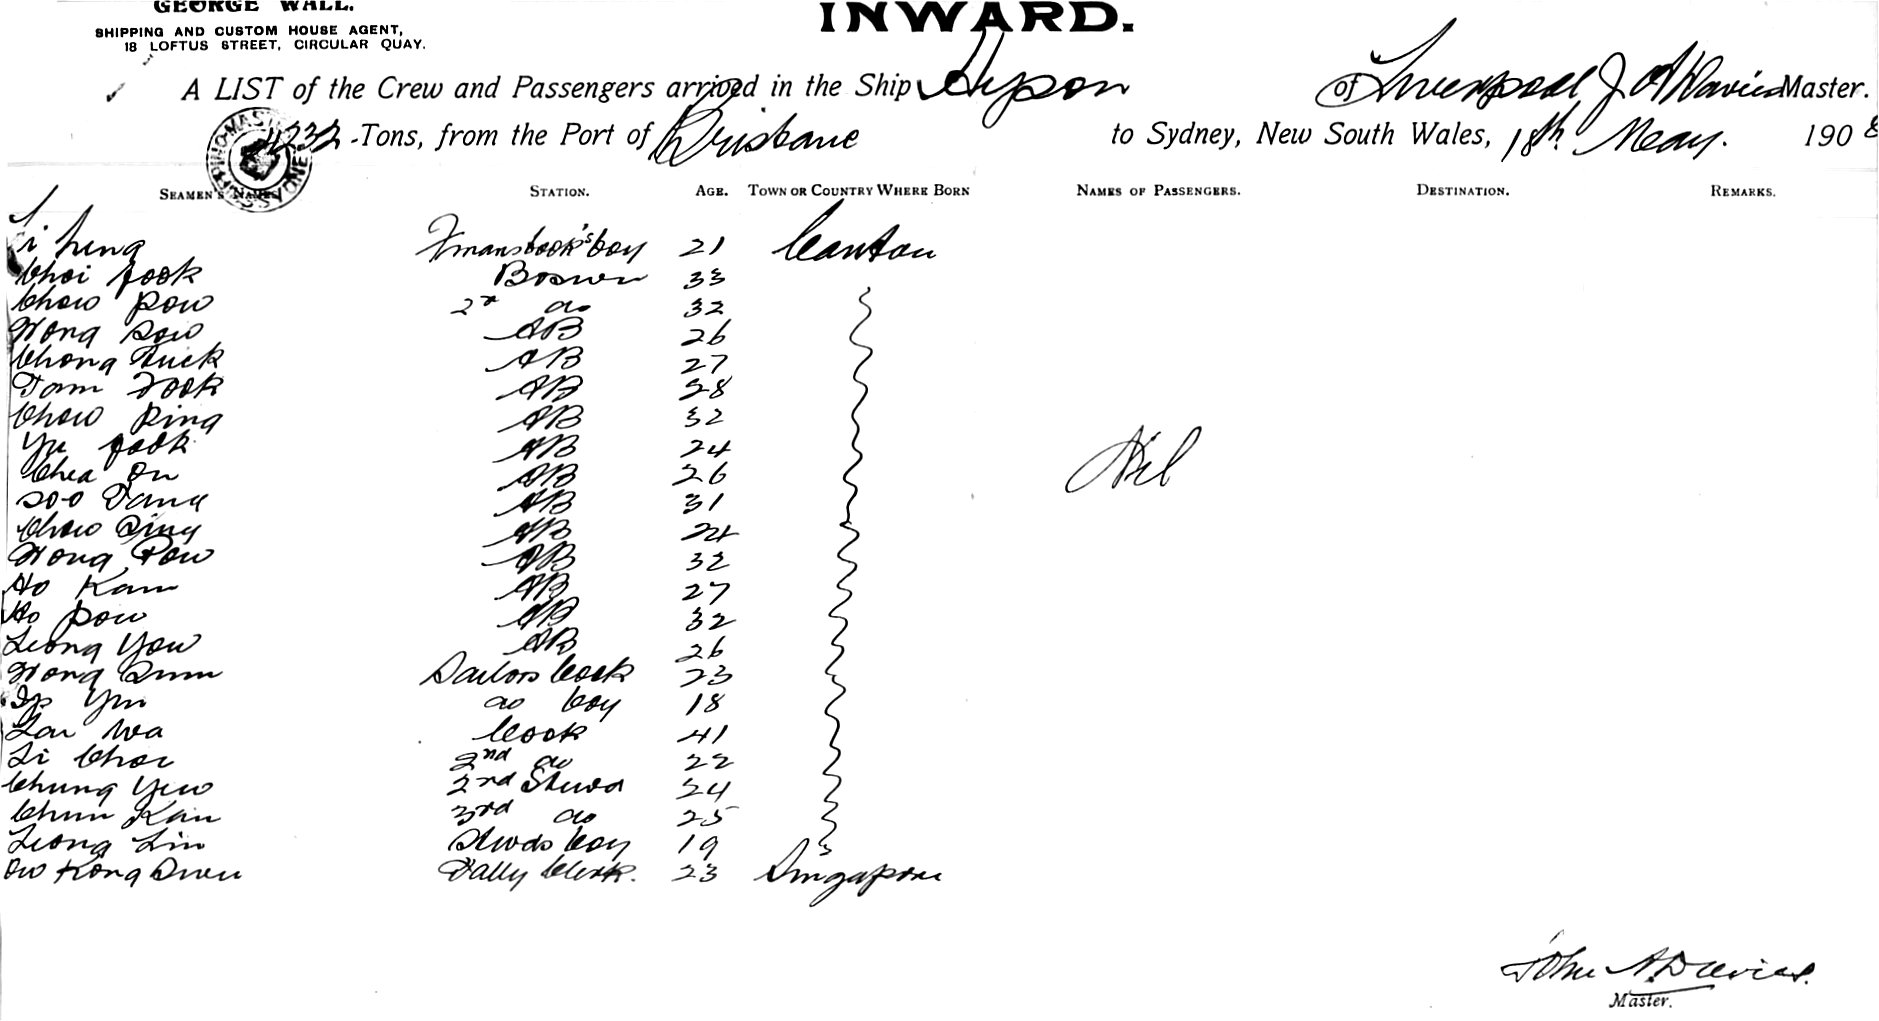 GEORGE WALL.
SHIPPING AND CUSTOM HOUSE AGENT,
18 LOFTUS STREET, CIRCULAR QUAY.
INWARD.
A LIST of the Crew and Passengers arrived in the Ship Hyson of Liverpool J A Davies Master.
4232 -Tons, from the Port of Brisbane to Sydney, New South Wales, 18th May. 1908
SEAMEN'S NAMES STATION. AGE. TOWN OR COUNTRY WHERE BORN NAMES OF PASSENGERS. DESTINATION. REMARKS.
Li Fmans Cook's boy 21 Canton
Choi Fook Boswn 33
Chow Pow 2nd do 32
Wong Sow AB 26
Chong AB 27
Tam Fook AB 28
Chow Ping AB 32
Yu Fook AB 24
Nil
Chea On AB 26
Soo AB 31
Chow Sing AB 24
Wong Pow AB 32
Ho Kam AB 27
Ho Pow AB 32
Leong You AB 26
Wong Sailors Cook 23
Ip do boy 18
Lau Wa Cook 41
Li Choi 2nd do 22
Chung Yew 2nd Stewd 24
Chun Kan 3rd do 25
Leong Lin Stwds boy 19
Ow Kong Swee Tally Clerk. 23 Singapore
John A. Davies.
Master.